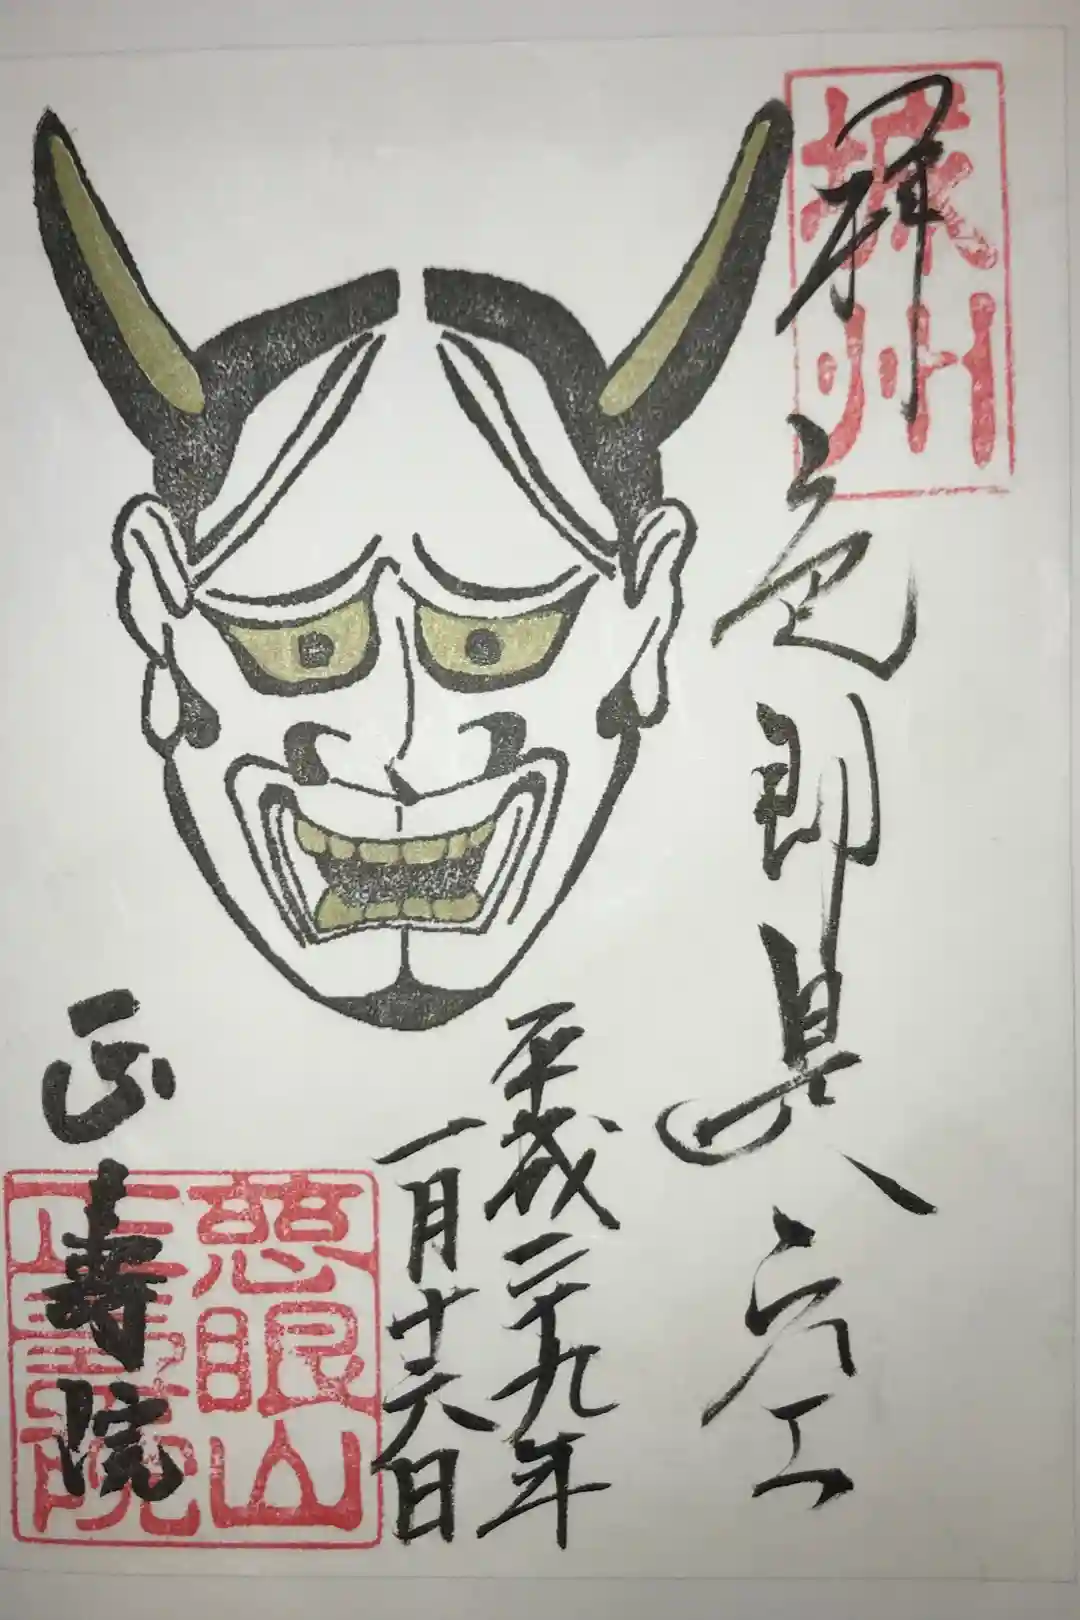 城州
拝
色即具六空
平成二十九年
一月十六日
正寿院
慈眼山
正寿院